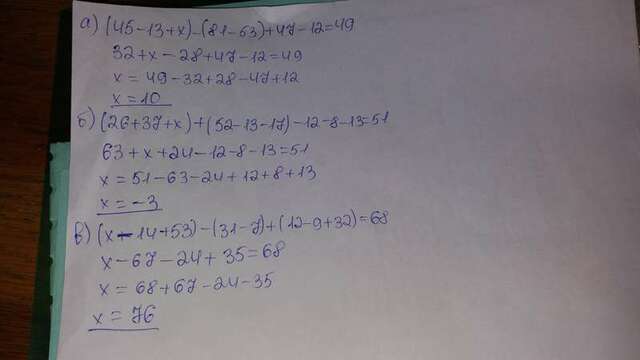 а) (45-13+x)-(81-63)+47-12=49
32+x-28+47-12=49
x = 49-32+28-47+12
x = 10
б) (26+37+x)+(52-13-17)-12-8-13=51
63+x+24-12-8-13=51
x = 51-63-24+12+8+13
x = -3
в) (x-14+53)-(31-7)+(12-9+32)=68
x-67-24+35=68
x = 68+67-24-35
x = 76